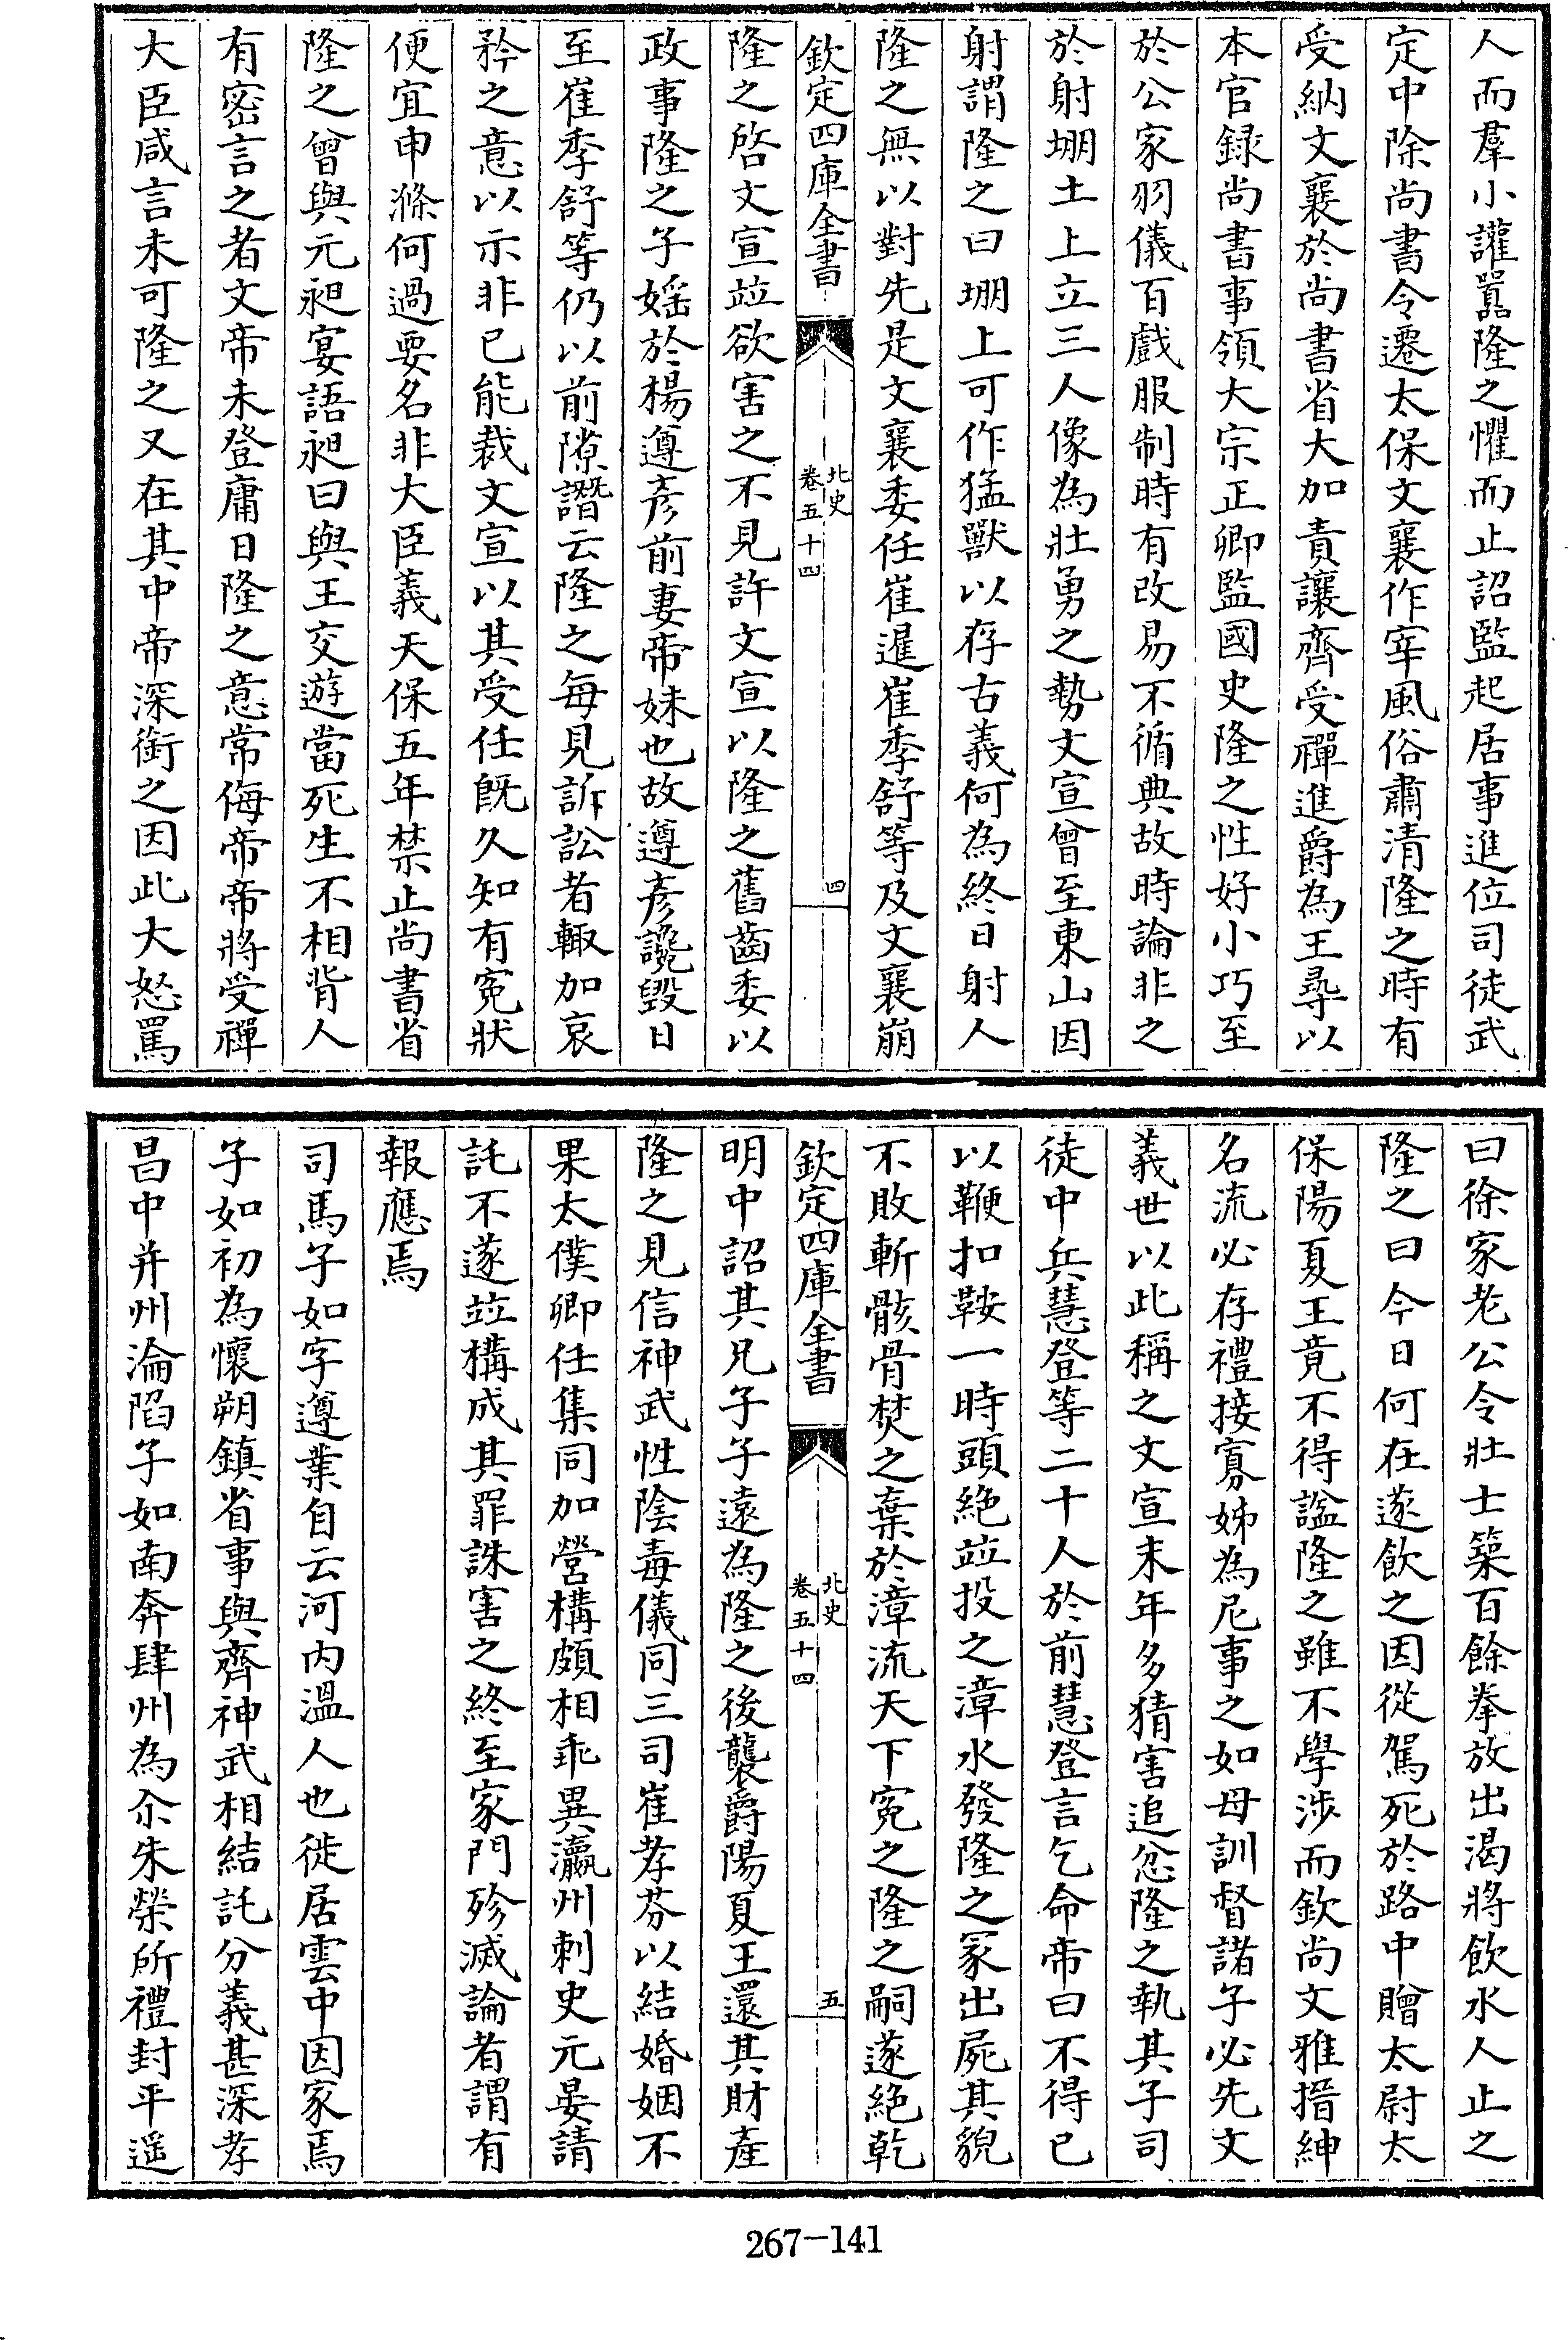 人而羣小讙嚚隆之懼而止詔監起居事進位司徒武
定中除尚書令遷太保文襄作宰風俗肅清隆之時有
受納文襄於尚書省大加責讓齊受禪進爵為王尋以
本官録尚書事領大宗正卿監國史隆之性好小巧至
於公家羽儀百戲服制時有改易不循典故時論非之
於射堋土上立三人像為壯勇之勢文宣曾至東山因
射謂隆之曰堋上可作猛獸以存古義何為終日射人
隆之無以對先是文襄委任崔暹崔季舒等及文襄崩
欽定四庫全書
北史
卷五十四
四
隆之啓文宣竝欲害之不見許文宣以隆之舊齒委以
政事隆之子婬於楊遵彦前妻帝妹也故遵彦讒毁日
至崔季舒等仍以前隙譖云隆之每見訴訟者輙加哀
矜之意以示非已能裁文宣以其受任旣久知有寃狀
便宜申滌何過要名非大臣義天保五年禁止尚書省
隆之曾與元昶宴語昶曰與王交遊當死生不相背人
有密言之者文帝未登庸日隆之意常侮帝帝將受禪
大臣咸言未可隆之又在其中帝深銜之因此大怒罵
曰徐家老公令壯士築百餘拳放出渴將飲水人止之
隆之曰今日何在遂飲之因從駕死於路中贈太尉太
保陽夏王竟不得諡隆之雖不學涉而欽尚文雅搢紳
名流必存禮接寡姊為尼事之如母訓督諸子必先文
義世以此稱之文宣末年多猜害追忿隆之執其子司
徒中兵慧登等二十人於前慧登言乞命帝曰不得已
以鞭扣鞍一時頭絶竝投之漳水發隆之冢出屍其貌
不敗斬骸骨焚之棄於漳流天下寃之隆之嗣遂絶乾
欽定四庫全書
北史
卷五十四
五
明中詔其兄子子遠為隆之後襲爵陽夏王還其財產
隆之見信神武性陰毒儀同三司崔孝芬以結婚姻不
果太僕卿任集同加營構頗相乖異瀛州刺史元晏請
託不遂竝構成其罪誅害之終至家門殄滅論者謂有
報應焉
司馬子如字遵業自云河内溫人也徙居雲中因家焉
子如初為懷朔鎮省事與齊神武相結託分義甚深孝
昌中并州淪陷子如南奔肆州為尒朱榮所禮封平遥
267-141